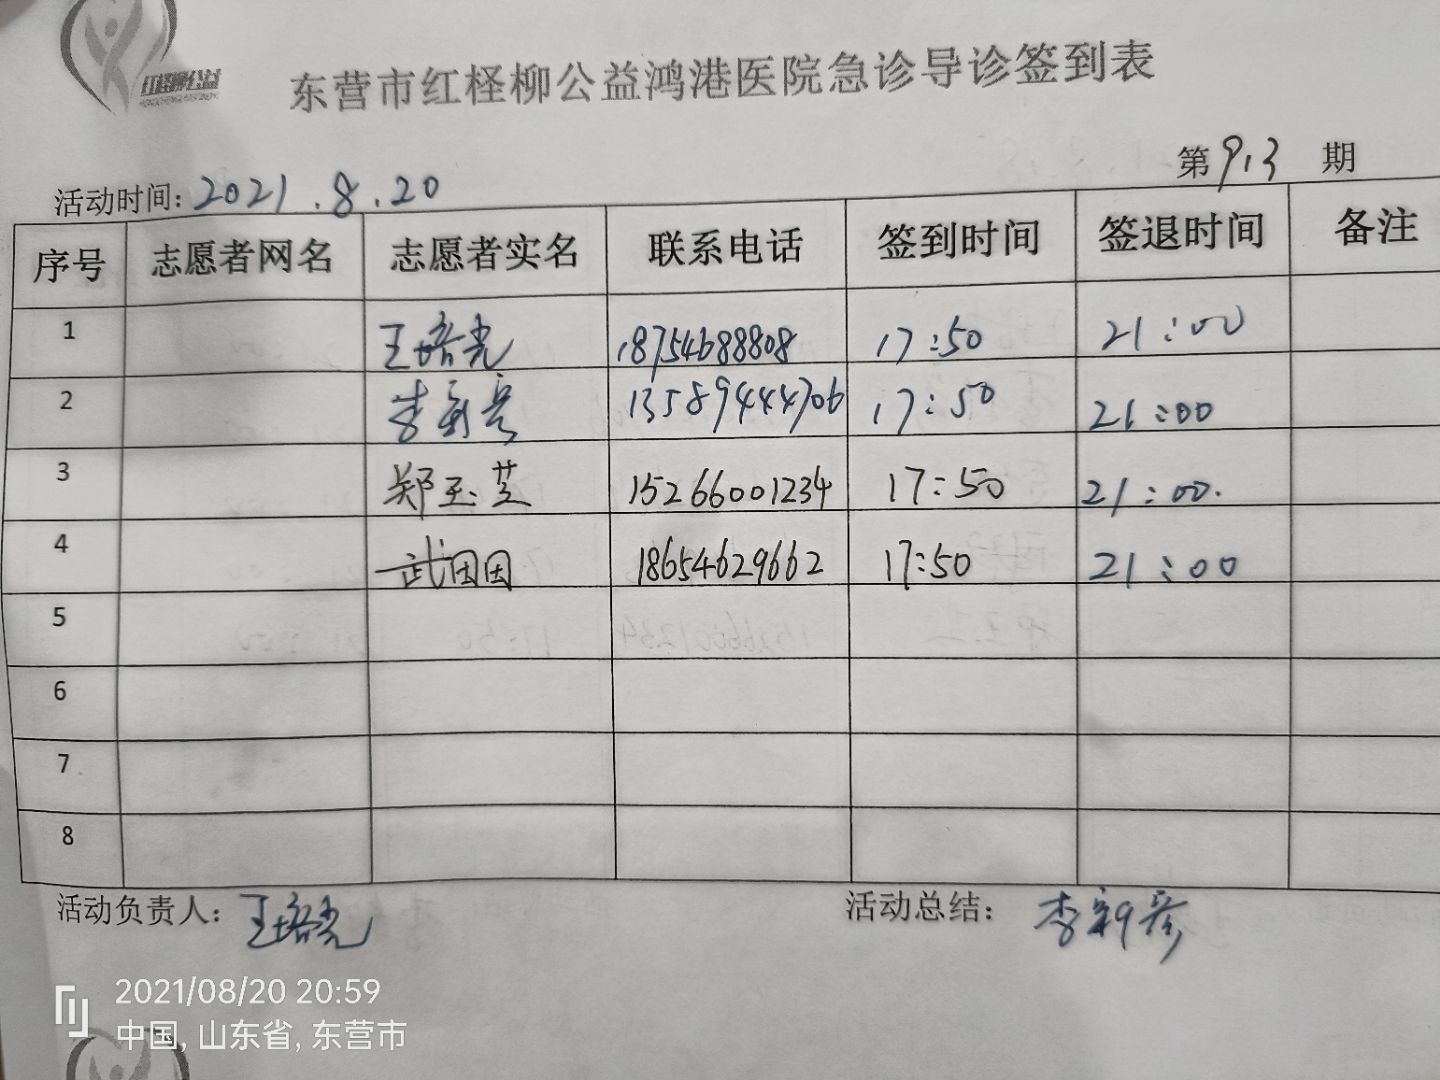 红柽柳公益
东营市红柽柳公益鸿港医院急诊导诊签到表
第913期
活动时间:2021.8.20
序号 志愿者网名 志愿者实名 联系电话 签到时间 签退时间 备注
1 王培光 18754688808 17:50 21:00
2 李新彦 13589444706 17:50 21:00
3 郑玉芝 15266001234 17:50 21:00.
4 武田田 18654629662 17:50 21:00
5
6
7
8
活动负责人:王培光 活动总结: 李新彦
2021/08/20 20:59
中国, 山东省, 东营市